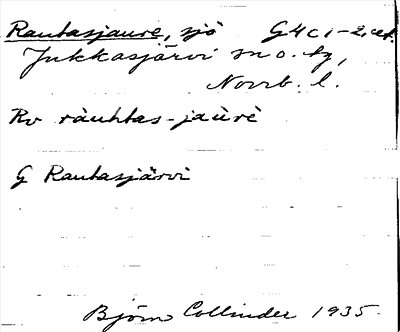 Rautasjaure, sjö G4c1-2, etc.
Jukkasjärvi sn o. tg,
Norrb. l.
Rv ràuhtas-jaùrè
G Rautasjärvi
Björn Collinder 1935.